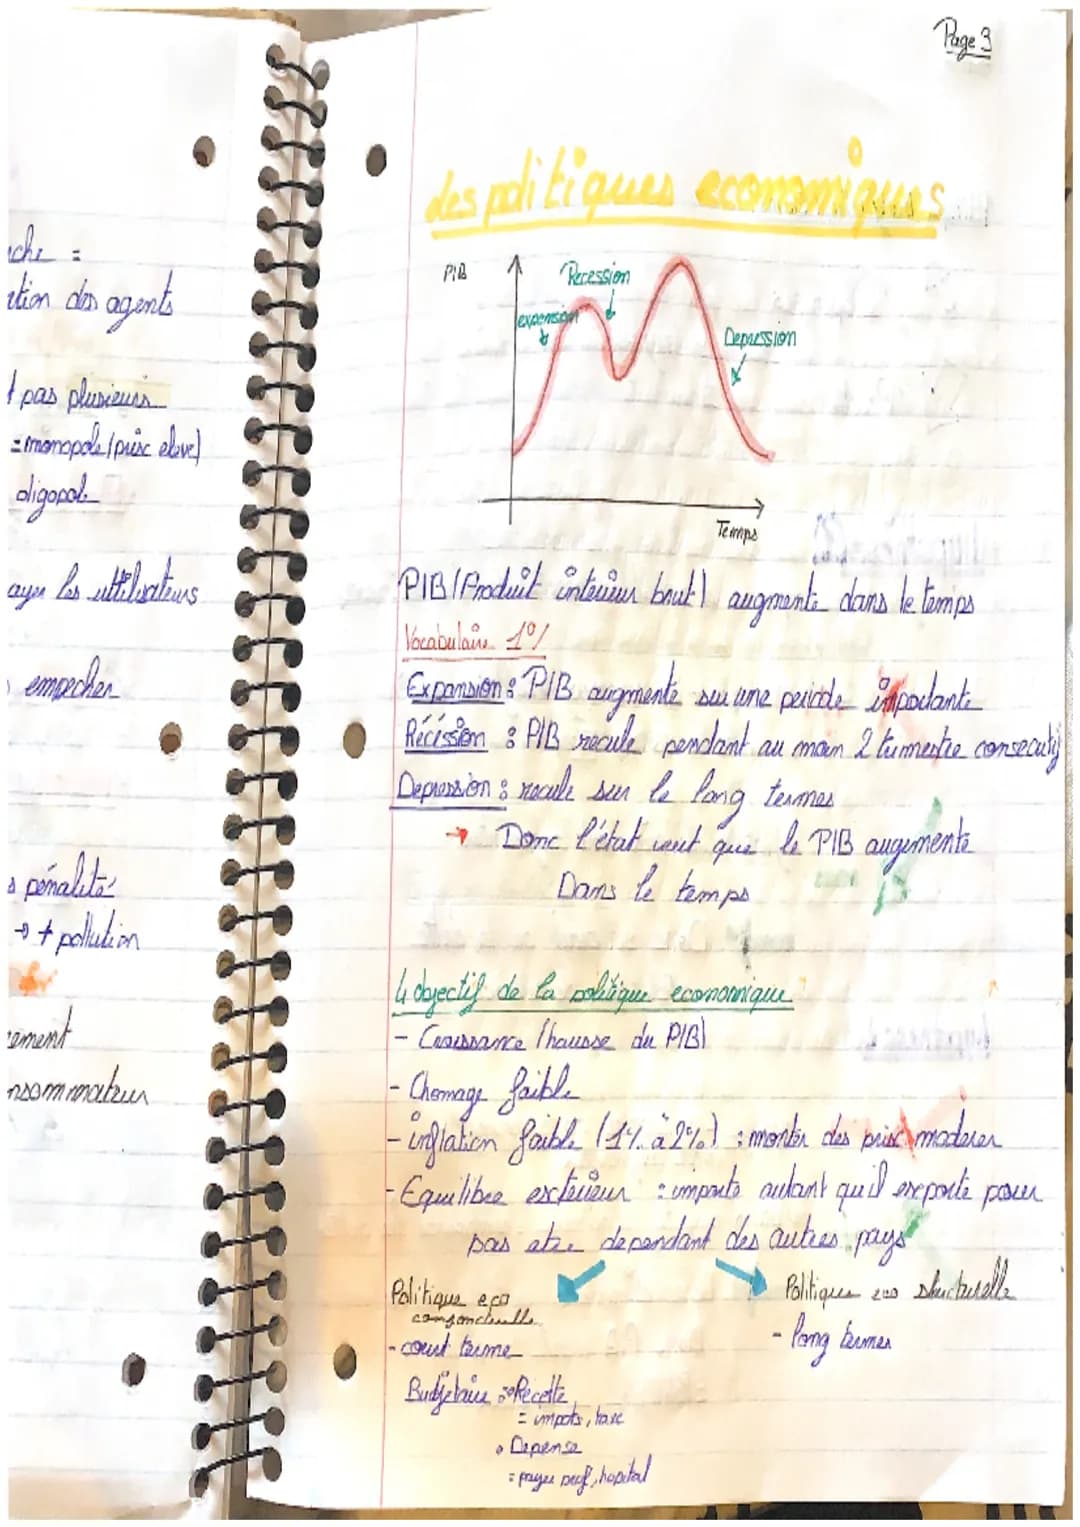 Page 3
des politiques economiques
PIB
Recession
expension
Depression
Temps
PIB (Produit intérieur brut) augmente dans le temps
Vocabulaire 1%
Expansion : PIB augmente sur une periode importante
Récission : PIB recule pendant au moin 2 trimestre consecutif
Depression : recule sur le long termes
→ Donc l'état veut que le PIB augmente
Dans le temps
4 objectif de la politique economique
- Croissance (hausse du PIB)
- Chomage faible
- inflation faible (1% à 2%) : monter des prix moderer
- Equilibre exterieur : importe autant qu'il exporte pour
pas etre dependant des autres pays
Politique eco
conjoncturelle
- court terme
Budjetaire : • Recette
= impots, taxe
• Depense
= payer prof, hopital
Politique eco structurelle
- long termes
che =
ation des agents
t pas plusieurs
= monopole (prix elevé)
oligopole
ayer les uttilisateurs
empecher
s pénalité
→ + pollution
cement
nsommateur